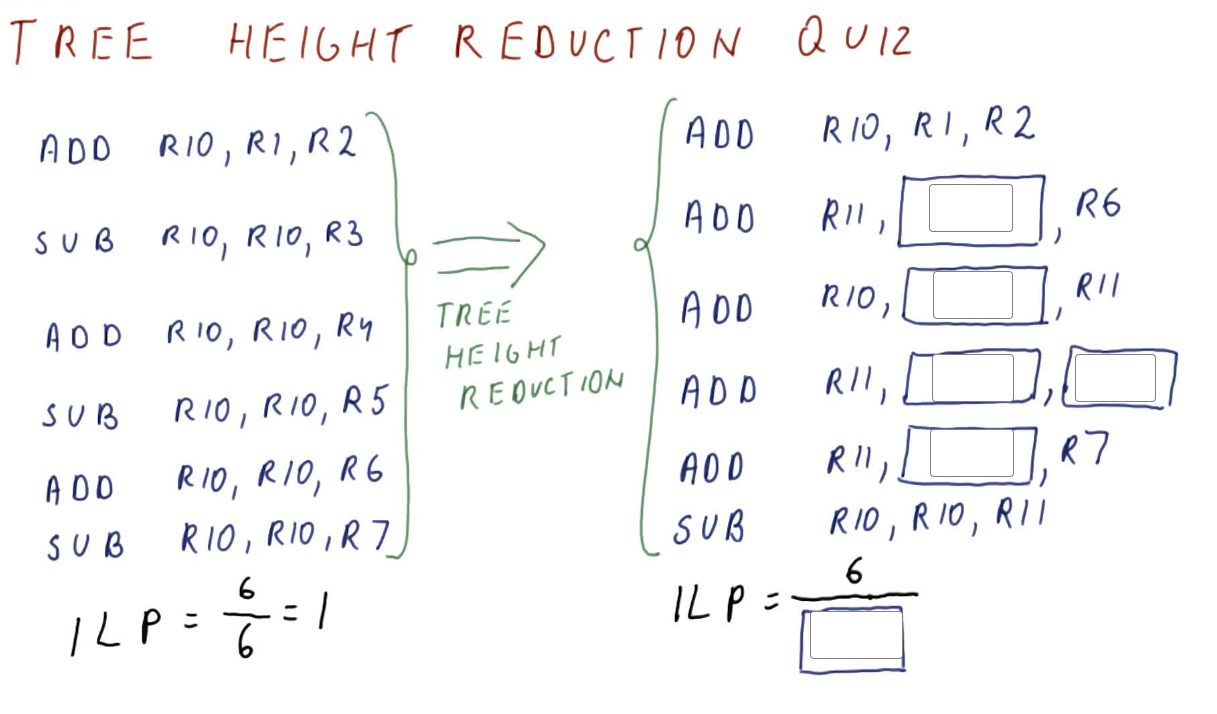 TREE HEIGHT REDUCTION QUIZ
ADD R10, R1, R2
SUB R10, R10, R3
ADD R10, R10, R4
SUB R10, R10, R5
ADD R10, R10, R6
SUB R10, R10, R7
ILP = 6/6 = 1
TREE
HEIGHT
REDUCTION
ADD R10, R1, R2
ADD R11, , R6
ADD R10, , R11
ADD R11, ,
ADD R11, , R7
SUB R10, R10, R11
ILP = 6